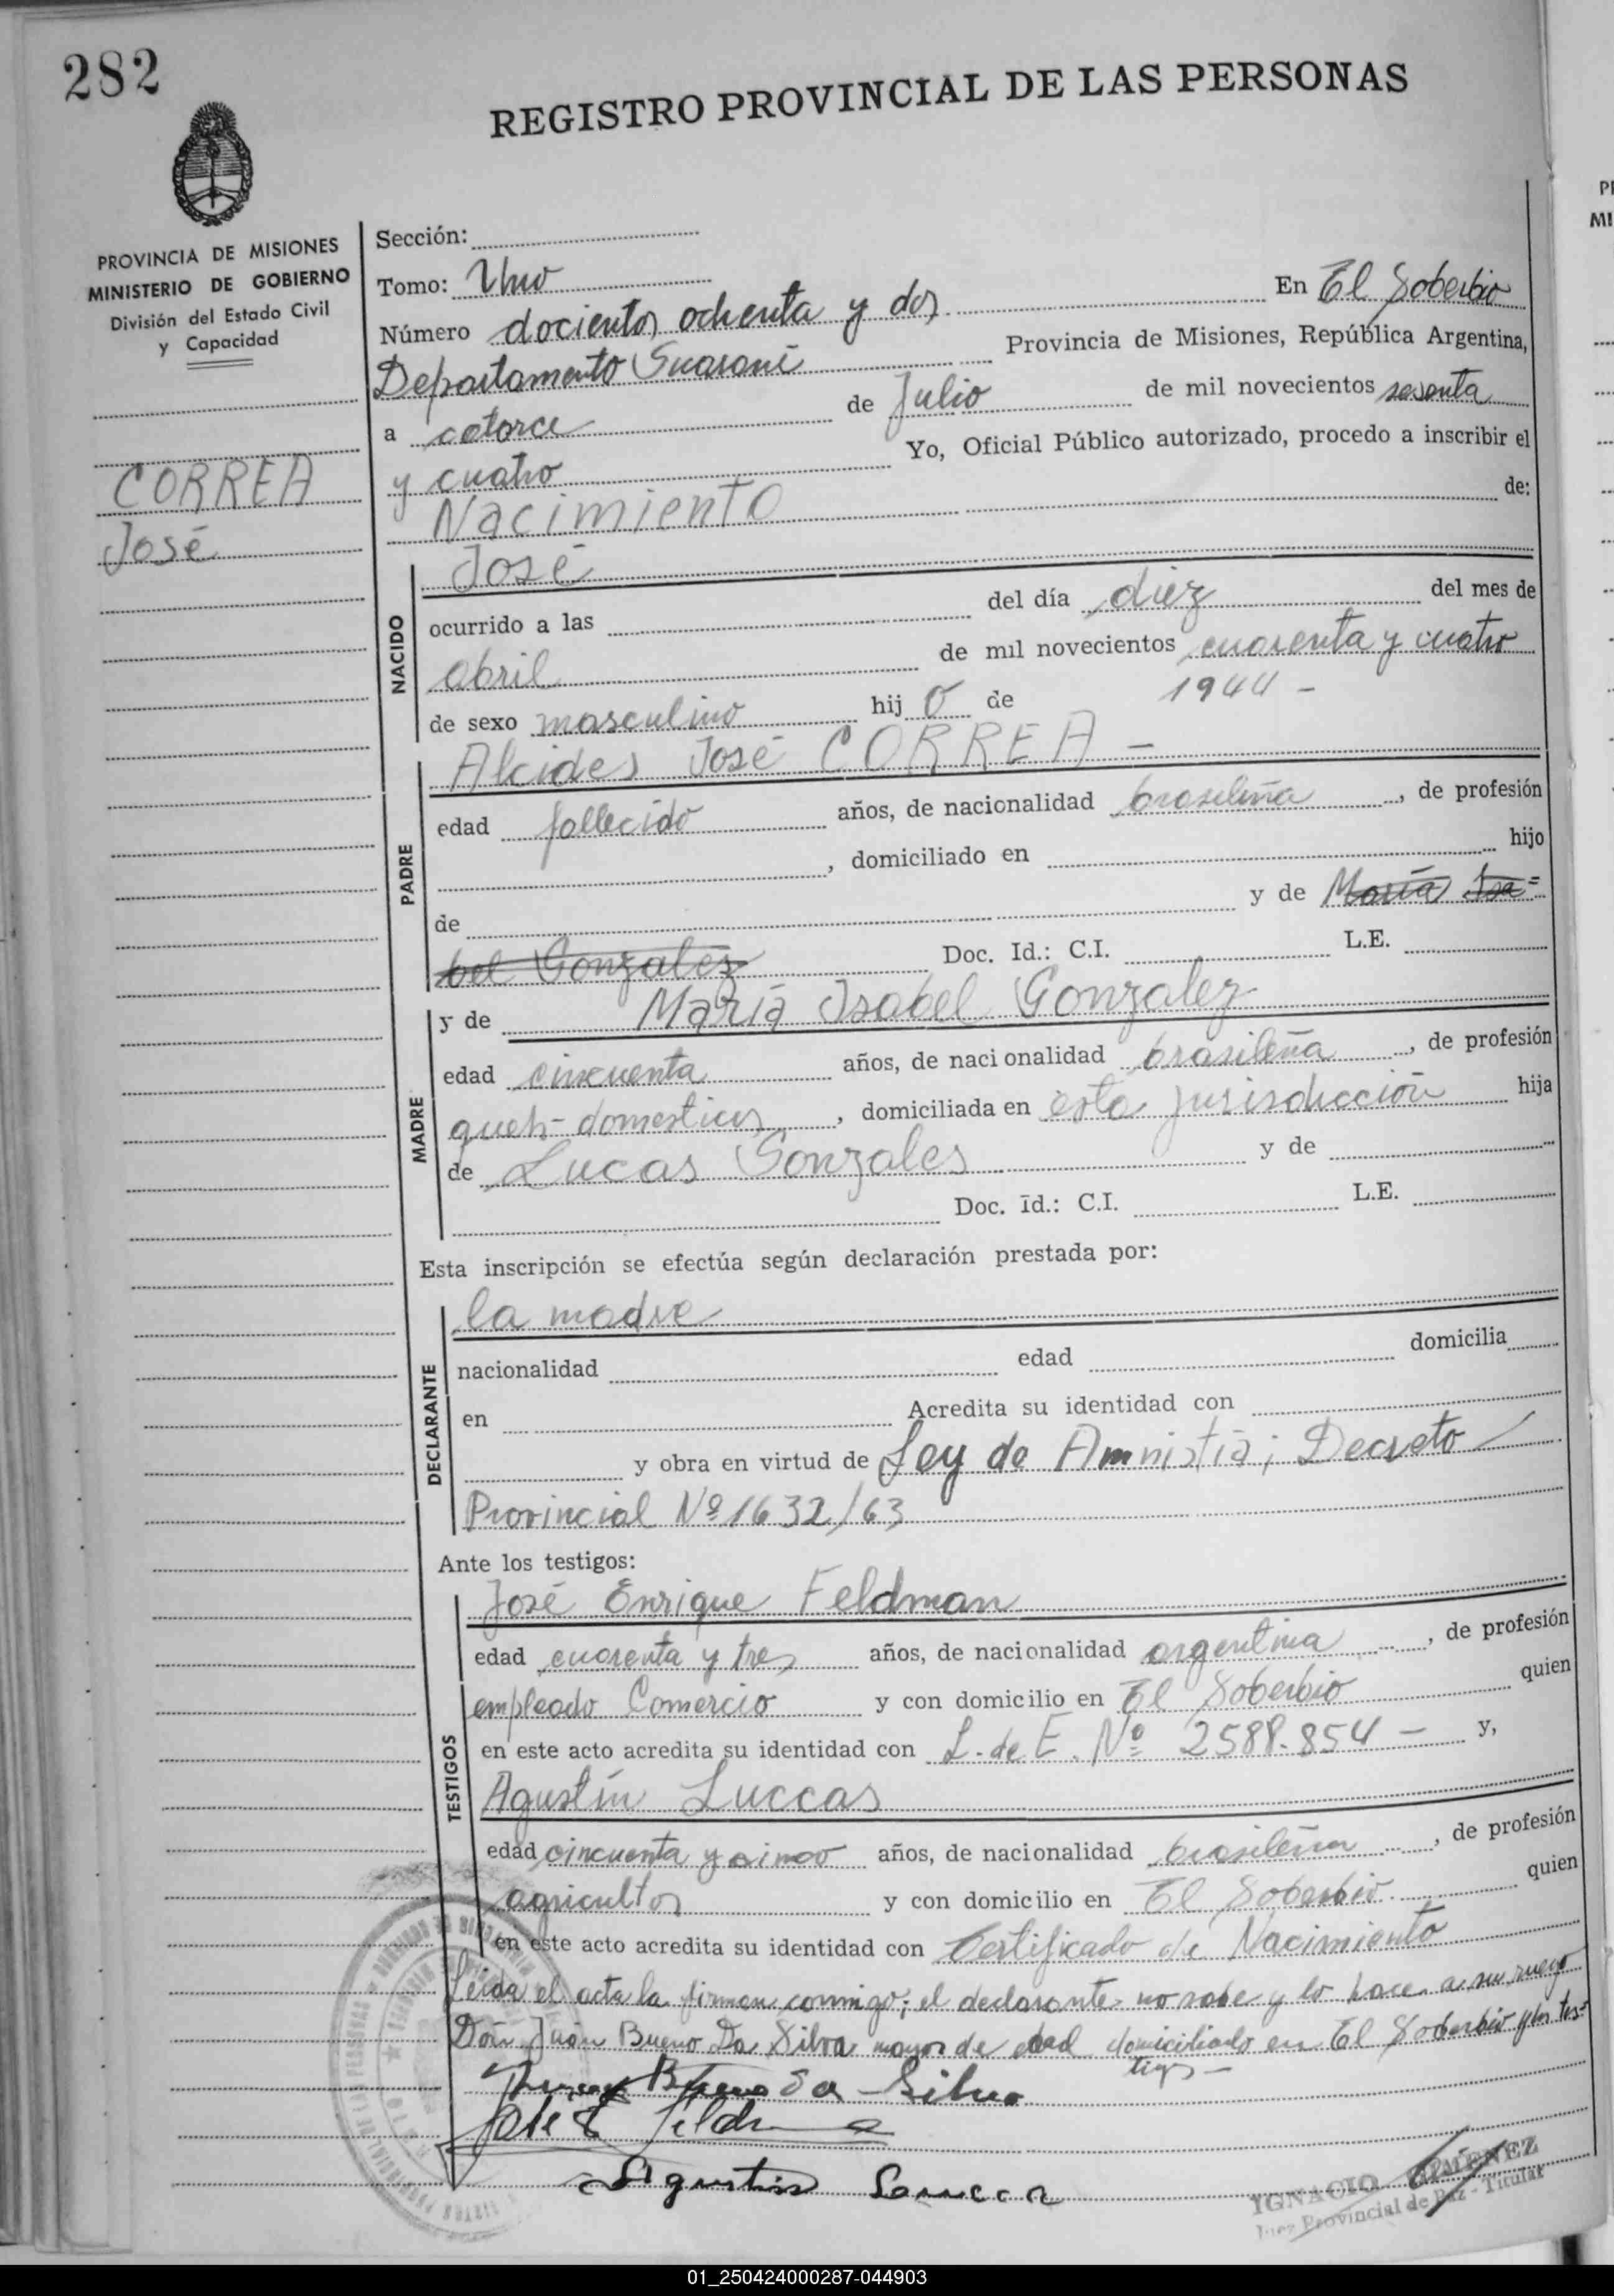 282
REGISTRO PROVINCIAL DE LAS PERSONAS
PROVINCIA DE MISIONES
MINISTERIO DE GOBIERNO
División del Estado Civil
y Capacidad
CORREA
José
Sección:
Tomo: Uno
Número docientos ochenta y dos En El Soberbio
Departamento Guaraní Provincia de Misiones, República Argentina,
a catorce de Julio de mil novecientos sesenta
y cuatro Yo, Oficial Público autorizado, procedo a inscribir el
Nacimiento de:
NACIDO
José
ocurrido a las del día diez del mes de
abril de mil novecientos cuarenta y cuatro
1944 -
de sexo masculino hijo de
PADRE
Alcides José CORREA -
edad fallecido años, de nacionalidad brasileña, de profesión
, domiciliado en hijo
de y de María Isa=
bel Gonzalez Doc. Id.: C.I. L.E.
MADRE
y de María Isabel Gonzalez
edad cincuenta años, de nacionalidad brasileña, de profesión
queh-domesticos, domiciliada en esta jurisdicción hija
de Lucas Gonzales y de
Doc. Id.: C.I. L.E.
Esta inscripción se efectúa según declaración prestada por:
DECLARANTE
la madre
nacionalidad edad domicilia
en Acredita su identidad con
y obra en virtud de Ley de Amnistía; Decreto
Provincial Nº 1632/63
Ante los testigos:
TESTIGOS
José Enrique Feldman
edad cuarenta y tres años, de nacionalidad argentina, de profesión
empleado Comercio y con domicilio en El Soberbio quien
en este acto acredita su identidad con L. de E. Nº 2588.854 - y,
Agustín Luccas
edad cincuenta y cinco años, de nacionalidad brasileña, de profesión
agricultor y con domicilio en El Soberbio quien
en este acto acredita su identidad con Certificado de Nacimiento
Leida el acta la firman conmigo; el declarante no sabe y lo hace a su ruego
Don Juan Bueno Da Silva mayor de edad domiciliado en El Soberbio y los tes=
tigos -
Bueno da Silva
José E Feldman
Agustin Lucca
IGNACIO GIMENEZ
Juez Provincial de Paz - Titular
01_250424000287-044903